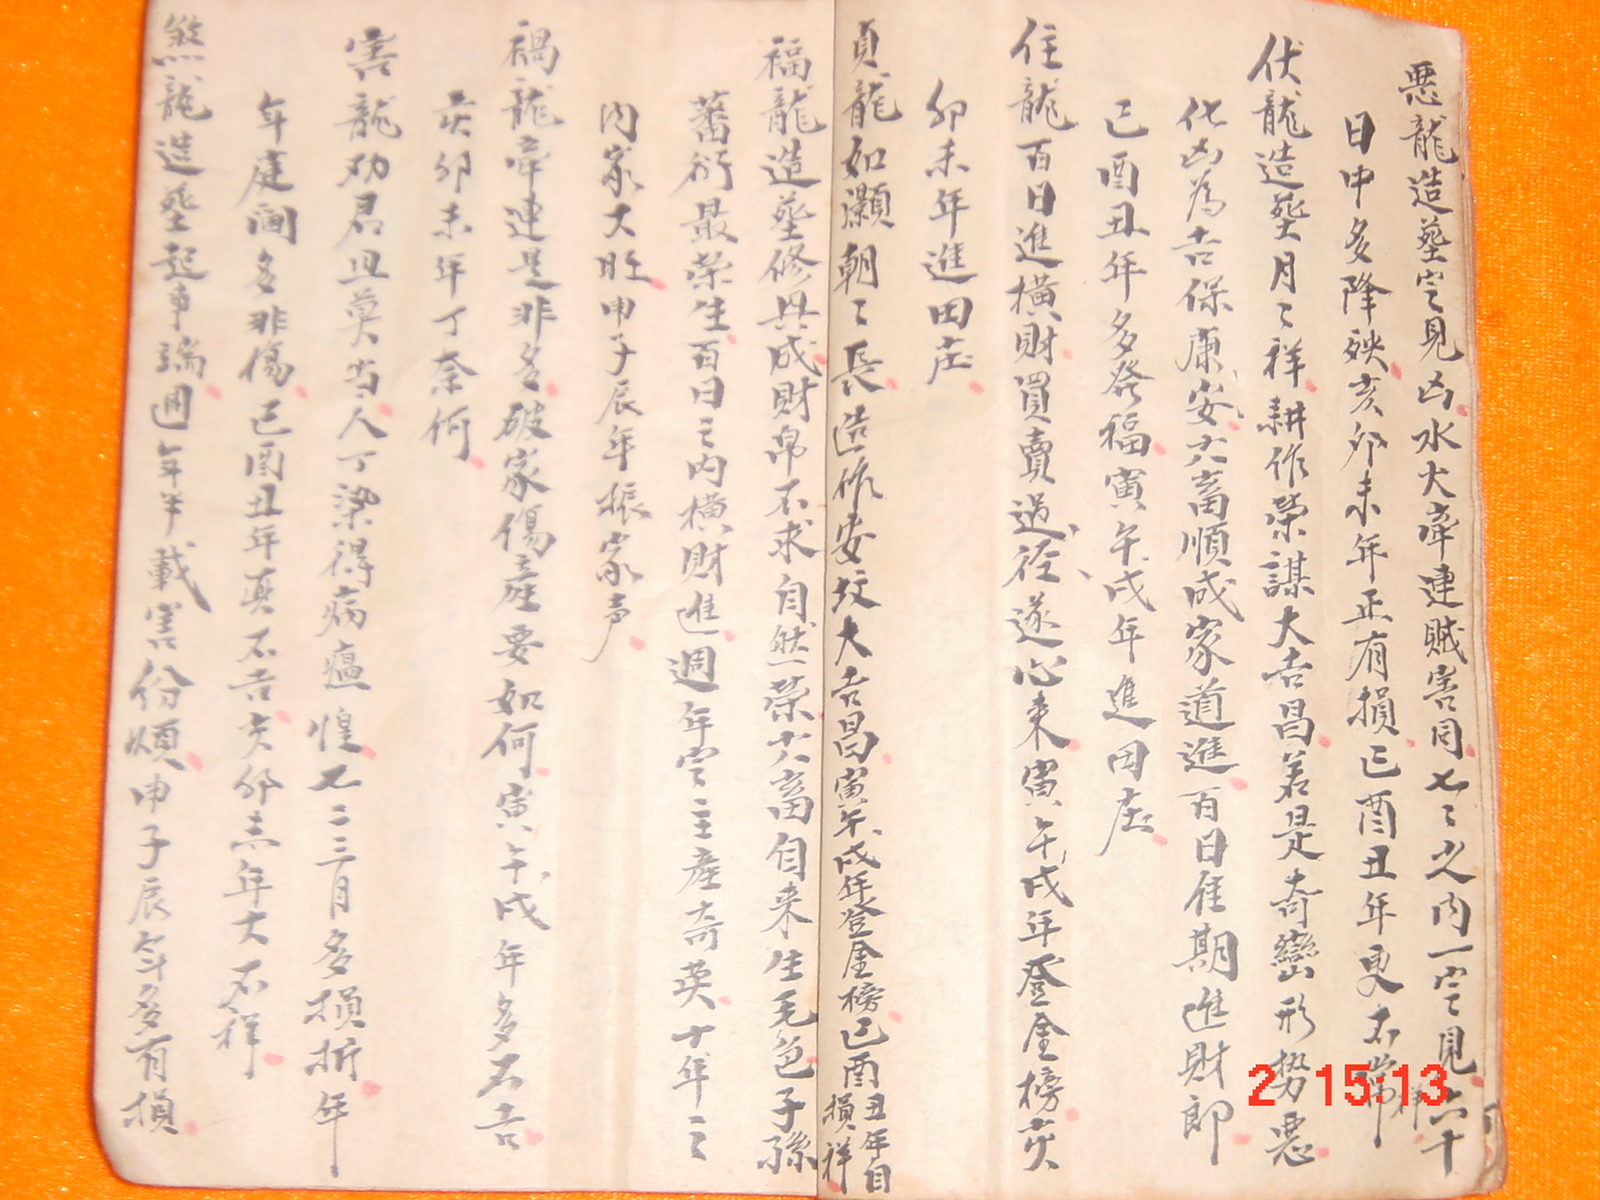 惡龍造塟定見凶水火牽連賊害同七〻之內一定見六十
日中多降殃亥卯未年正有損巳酉丑年更不
伏龍造塟月〻祥耕作榮謀大吉昌若是奇巒形势惡
化凶為吉保康安六畜順成家道進百日佳期進財郎
巳酉丑年多發福寅午戌年進田庄
住龍百日進橫財買賣過徑遂心来寅午戌年登金榜亥
卯未年進田庄
貞龍如灝朝〻長造作安坟大吉昌寅午戌年登金榜巳酉丑年自損祥
福龍造塟修具成財帛不求自然榮六畜自来生毛色子孫
蕃衍最榮生百日之內橫財進週年定主產奇英十年之
內家大旺申子辰年振家声
禍龍牽連是非多破家傷産要如何寅午戌年多不吉
亥卯未年丁奈何
害龍劝君且莫当人丁染得病瘟惶七二三月多損折年
年庭闹多非傷巳酉丑年真不吉亥卯未年大不祥
煞龍造塟起事端週年半載害份煩申子辰年多有損
2 15:13